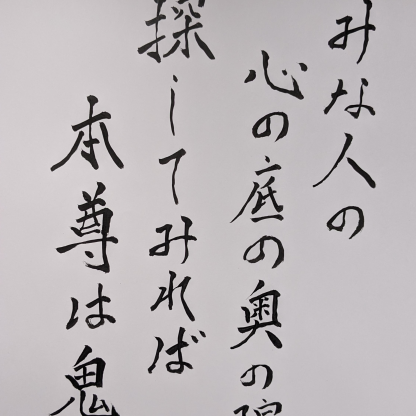 みな人の
心の底の奥の院
探してみれば
本尊は鬼